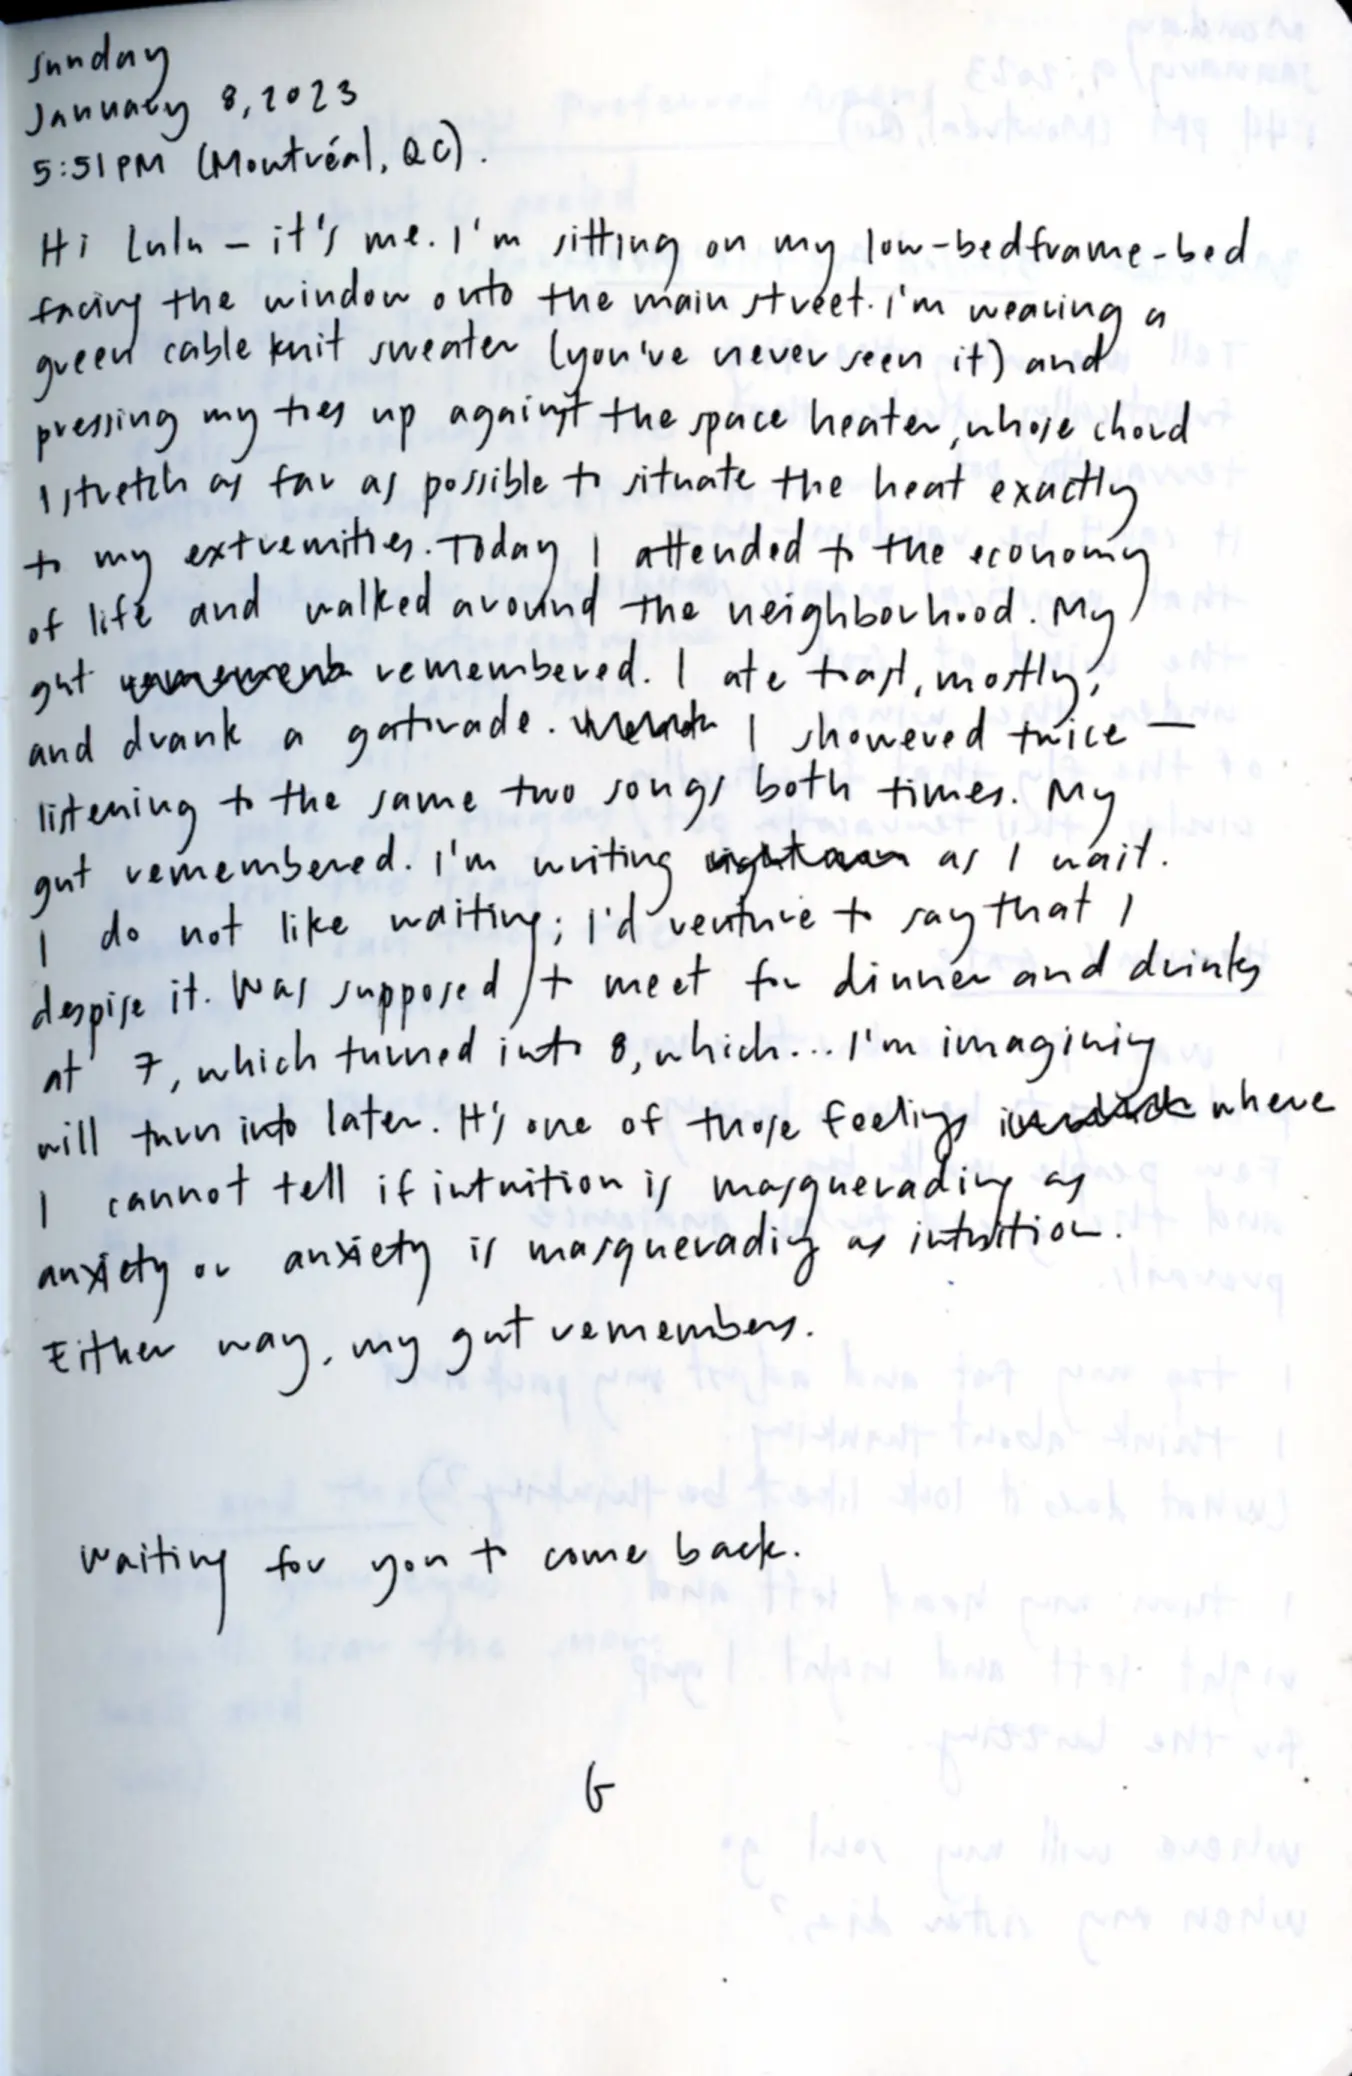 Sunday
January 8, 2023
5:51 PM (Montréal, QC).
Hi Lulu – it's me. I'm sitting on my low-bedframe-bed
facing the window onto the main street. I'm wearing a
green cable knit sweater (you've never seen it) and
pressing my toes up against the space heater, whose chord
I stretch as far as possible to situate the heat exactly
to my extremities. Today I attended to the economy
of life and walked around the neighborhood. My
gut remembered. I ate toast, mostly,
and drank a gatorade. I showered twice —
listening to the same two songs both times. My
gut remembered. I'm writing as I wait.
I do not like waiting; I'd venture to say that I
despise it. Was supposed to meet for dinner and drinks
at 7, which turned into 8, which... I'm imagining
will turn into later. It's one of those feelings where
I cannot tell if intuition is masquerading as
anxiety or anxiety is masquerading as intuition.
Either way, my gut remembers.
Waiting for you to come back.
G